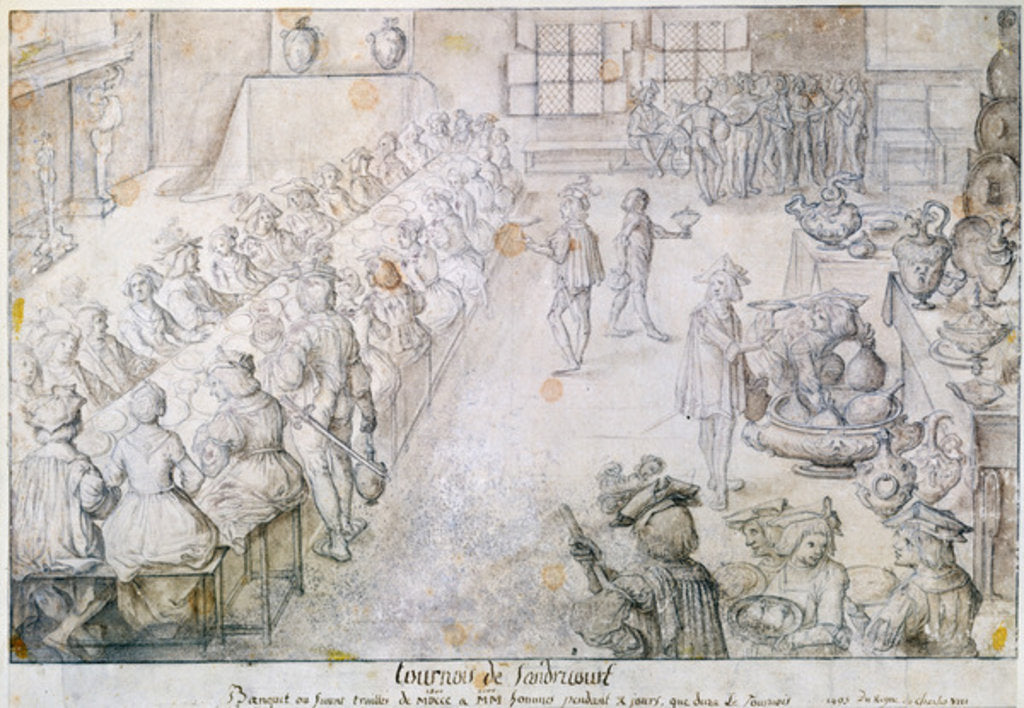 tournois de Sandricourt
Banquet ou furent traittes de MDCCC a MM hommes pendant X jours, que dura Le Tournois 1493 Du Regne de Charles VIII